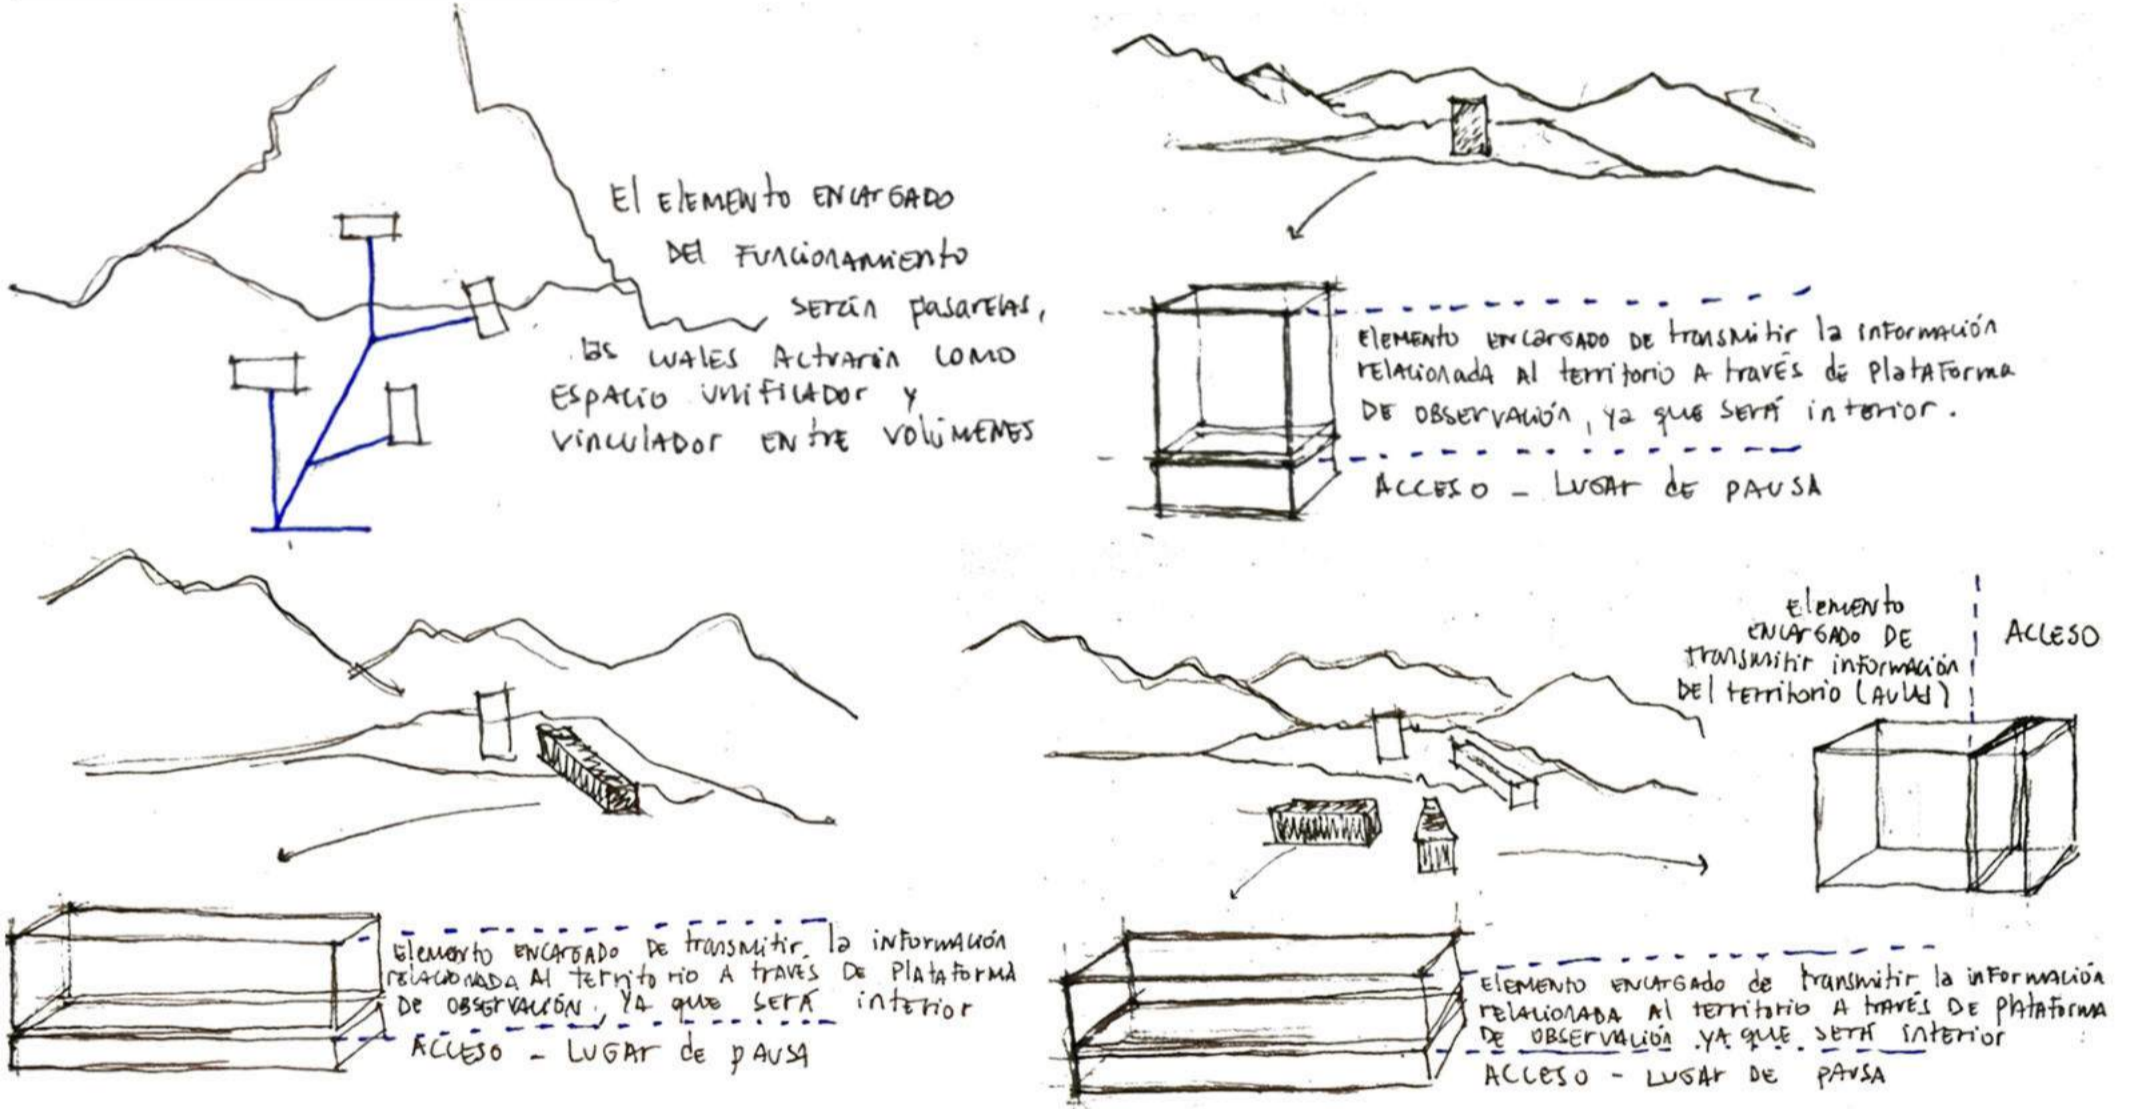 El elemento encargado
del funcionamiento
serán pasarelas,
las cuales actuarán como
espacio unificador y
vinculador entre volúmenes
Elemento encargado de transmitir la información
relacionada al territorio a través de plataforma
de observación, ya que será interior.
Acceso - Lugar de pausa
Elemento encargado de transmitir la información
relacionada al territorio a través de plataforma
de observación, ya que será interior
Acceso - Lugar de pausa
Elemento
encargado de
transmitir información
del territorio (aulas)
Acceso
Elemento encargado de transmitir la información
relacionada al territorio a través de plataforma
de observación ya que será interior
Acceso - Lugar de pausa